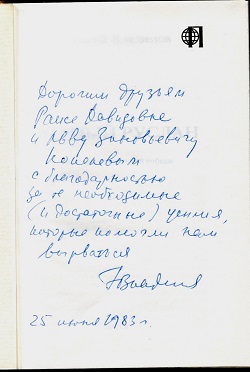 Дорогим друзьям
Раисе Давидовне
и Льву Зиновьевичу
Копелевым
с благодарностью
за те необходимые
(и достаточные) усилия,
которые помогли нам
вырваться
25 июня 1983 г.